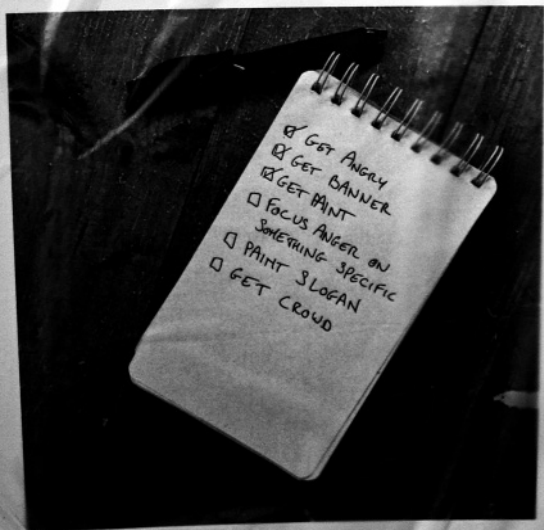 ☑ GET ANGRY
☑ GET BANNER
☑ GET PAINT
☐ FOCUS ANGER ON
SOMETHING SPECIFIC
☐ PAINT SLOGAN
☐ GET CROWD